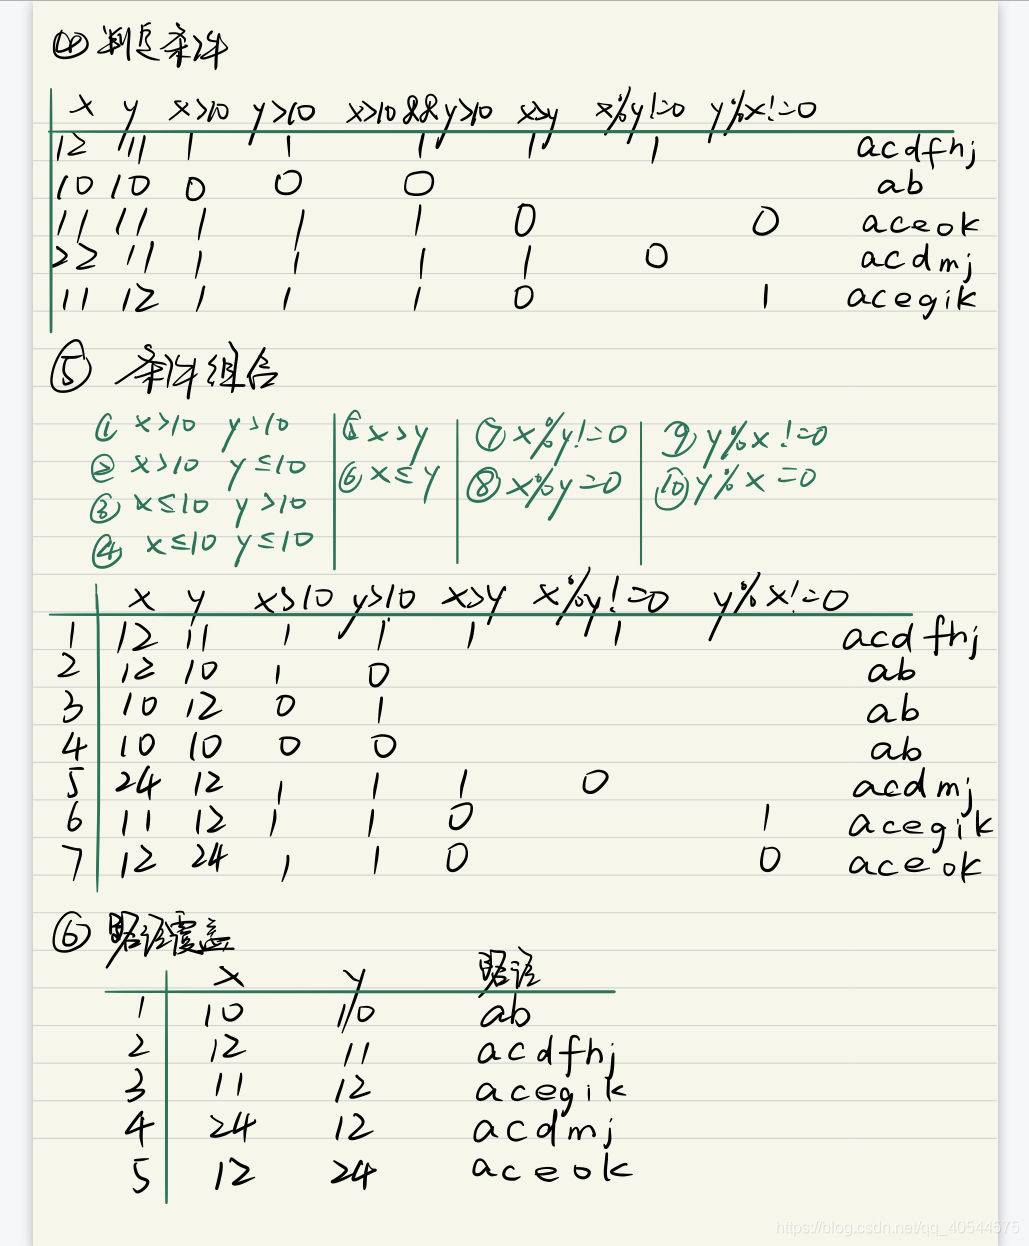 ④ 判定条件
x y x>10 y>10 x>10&&y>10 x>y x%y!=0 y%x!=0
12 11 1 1 1 1 1 acdfhj
10 10 0 0 0 ab
11 11 1 1 1 0 0 aceok
22 11 1 1 1 1 0 acdmj
11 12 1 1 1 0 1 acegik
⑤ 条件组合
① x>10 y>10 ⑤ x>y ⑦ x%y!=0 ⑨ y%x!=0
② x>10 y≤10 ⑥ x≤y ⑧ x%y=0 ⑩ y%x=0
③ x≤10 y>10
④ x≤10 y≤10
x y x>10 y>10 x>y x%y!=0 y%x!=0
1 12 11 1 1 1 1 acdfhj
2 12 10 1 0 ab
3 10 12 0 1 ab
4 10 10 0 0 ab
5 24 12 1 1 1 0 acdmj
6 11 12 1 1 0 1 acegik
7 12 24 1 1 0 0 aceok
⑥ 路径覆盖
x y 路径
1 10 10 ab
2 12 11 acdfhj
3 11 12 acegik
4 24 12 acdmj
5 12 24 aceok
https://blog.csdn.net/qq_40544575